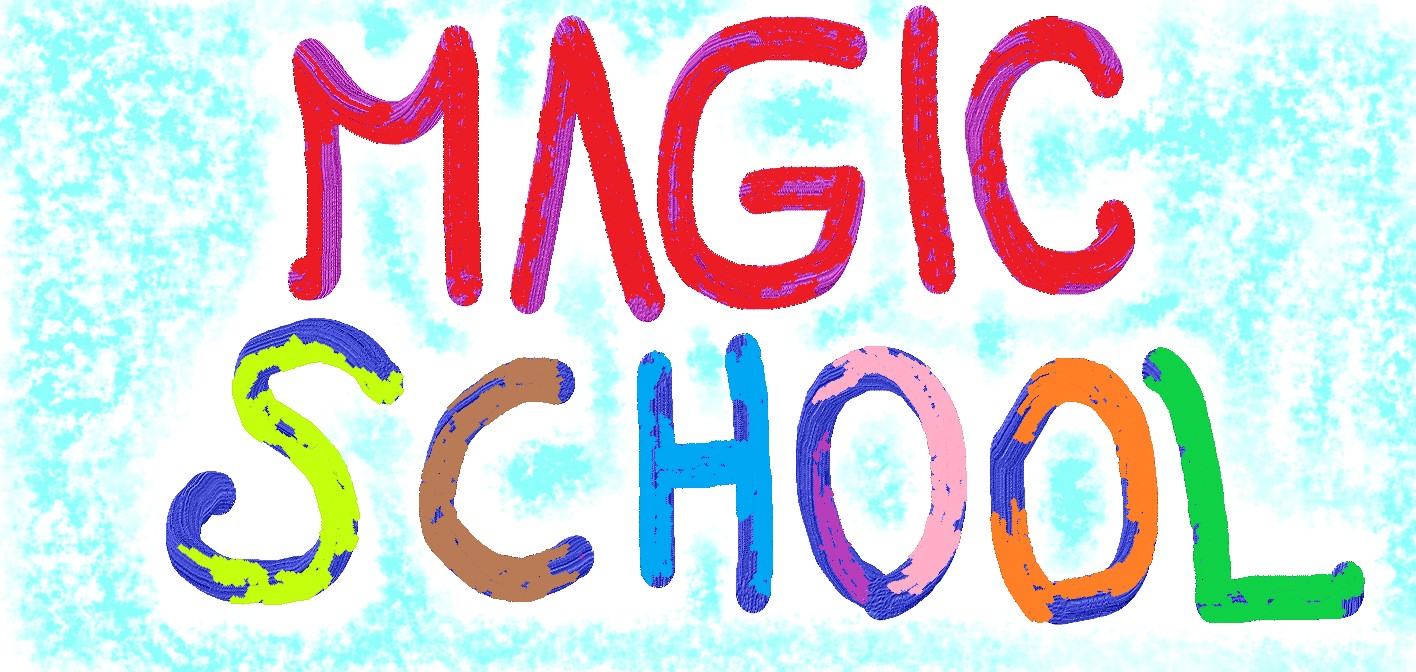 MAGIC
SCHOOL